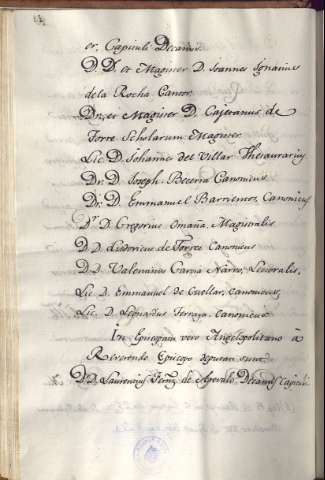 or. Capituli Decanus.
D. D. et Magister D. Joannes Ignatius
de la Rocha Cantor.
Dr. et Magister D. Cajetanus de
Torre Scholarum Magister.
Lic. D. Johannes del Villar Thesaurarius
Dr. D. Joseph Becerra Canonicus
Dr. D. Emmanuel Barrientos, Canonicus
Dr. D. Gregorius Omaña, Magistralis
D. D. Ludovicus de Torres Canonicus
D. D. Valentinus Garcia Narro, Lectoralis,
Lic. D. Emmanuel de Cuellar, Canonicus,
Lic. D. Leonardus Terraya Canonicus
In Episcopatu vero Angelopolitano á
Reverendo Episcopo deputati sunt.
D. D. Laurencius Fernz. de Arevalo Decanus Capituli